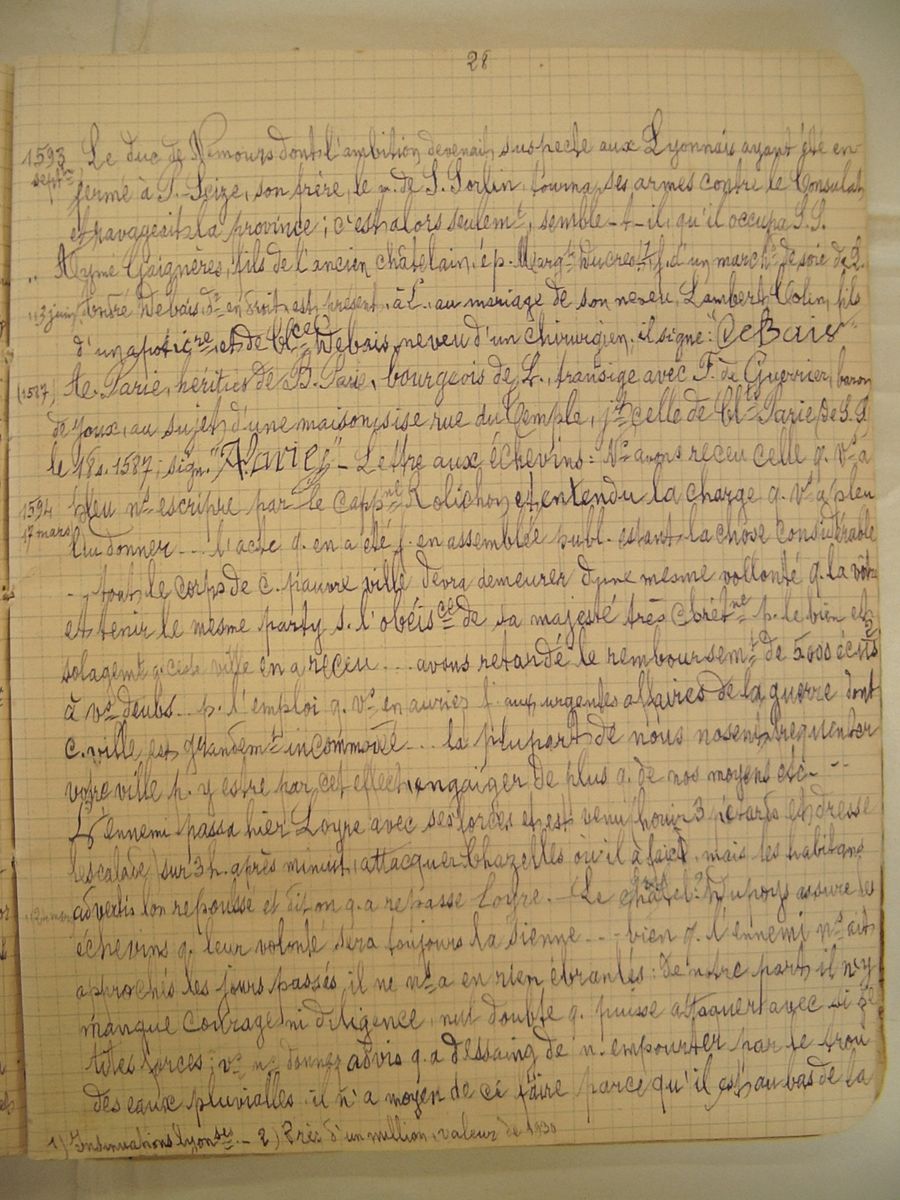 28
1593 Le duc de Nemours dont l'ambition devenait suspecte aux Lyonnais ayant été en-
sept. fermé à P. Scize, son frère, le m. de S. Sorlin tourna ses armes contre le Consulat,
et ravageait la province; c'est alors seulemt, semble-t-il, qu'il occupa S.S.
" Ayme Gaignères, fils de l'ancien châtelain, ép. Margte Ducrest, f. d'un marchd de soie de L.
3 juin, André Debais, dr en droit, est présent, à L. au mariage de son neveu, Lambert Colin, fils
d'un apoticre et de Blce Debais, neveu d'un chirurgien. il signe: "De Bais"
(1587) Ae. Parie, héritier de B. Parie, bourgeois de L., transige avec F. de Guerrier, baron
de Joux, au sujet d'une maison sise rue du Temple, jte celle de Cl. Parie de S.S.
le 18 s. 1587, sign. "A. Parie" - Lettre aux échevins: Ns avons receu celle q. Vs a
1594 pleu ns escripre par le cappne Rolichon et entendu la charge q. vs a pleu
17 mars lui donner ... l'acte q. en a été f. en assemblée publ. estant la chose considérable
... tout le corps de c. pauvre ville devra demeurer d'une mesme vollonté q. la vôtre
et tenir le mesme party s. l'obéisce de sa majesté très Chrétne p. le bien et
solagemt q. ceste ville en a receu ... avons retardé le remboursemt de 5000 écus
à vs deubs ... p. l'emploi q. vs en auriez f. aux urgentes affaires de la guerre dont
c. ville est grandemt incommodée ... la plupart de nous nosent fréquenter
votre ville p. y estre par cet effect engaiger de plus q. de nos moyens etc. ...
L'ennemi passa hier Loyre avec ses forces et est venu 3 pétards et dresse
escalade, sur 3 h. après minuit, attacquer Chazelles où il a faict, mais les habitans
advertis lon repoulsé et dit on q. a repassé Loyre. - Le châtel. Dupoys assure les
échevins q. leur volonté sera toujours la sienne ... bien q. l'ennemi ns ait
approchés les jours passés, il ne ns a en rien ébranlés: de notre part, il n'y
manque courage ni diligence, nul doubte q. puisse attaquer avec si
tites forces; vs ns donnez advis q. a dessaing de n. empourter par le trou
des eaux pluvialles, il n'a moyen de ce faire parce qu'il est au bas de la
1) Insinuations lyonses. - 2) Près d'un million, valeur de 1930